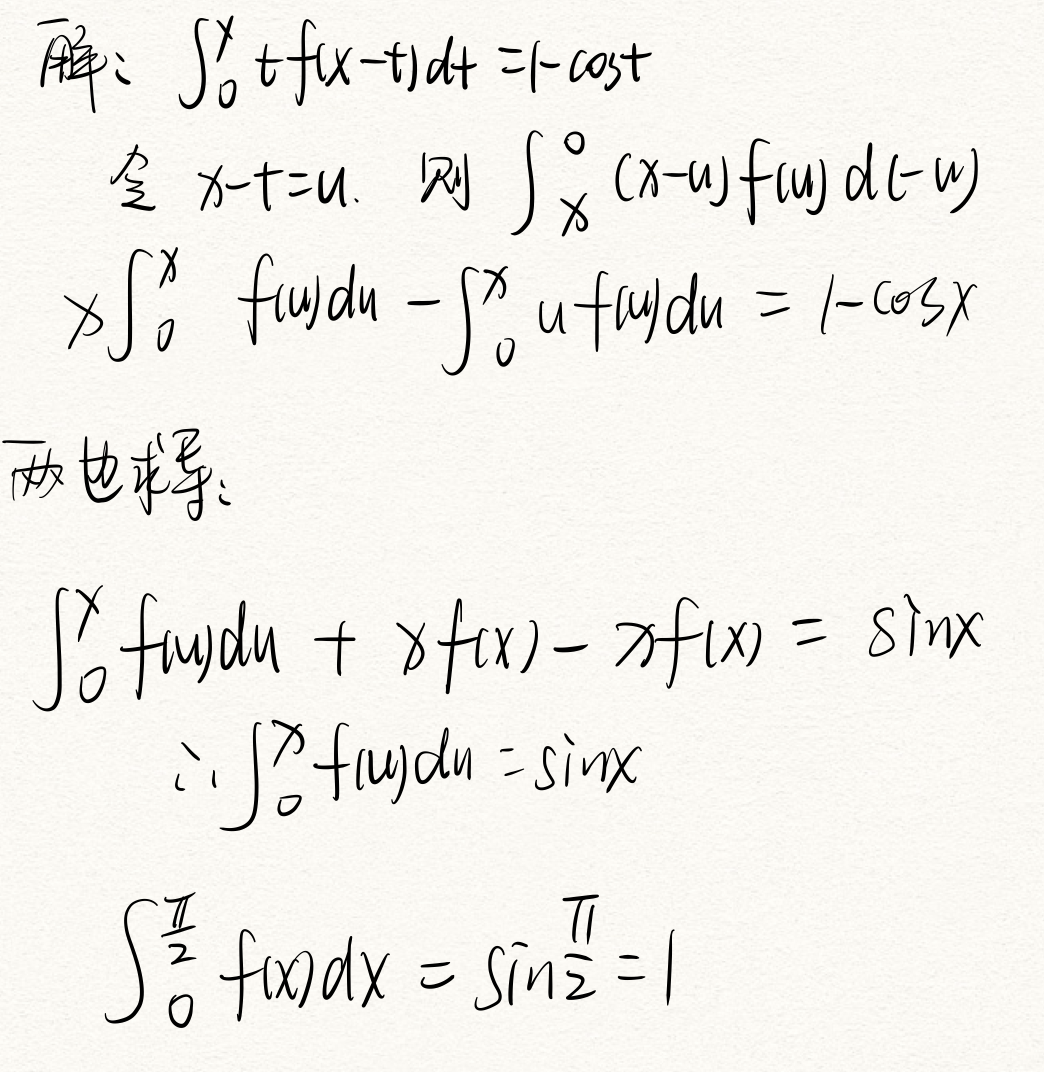 解: ∫₀ˣ t f(x-t)dt = 1-cost
令 x-t=u. 则 ∫ₓ⁰ (x-u)f(u)d(-u)
x∫₀ˣ f(u)du - ∫₀ˣ uf(u)du = 1-cosx
两边求导:
∫₀ˣ f(u)du + xf(x) - xf(x) = sinx
∴ ∫₀ˣ f(u)du = sinx
∫₀^(π/2) f(x)dx = sin π/2 = 1